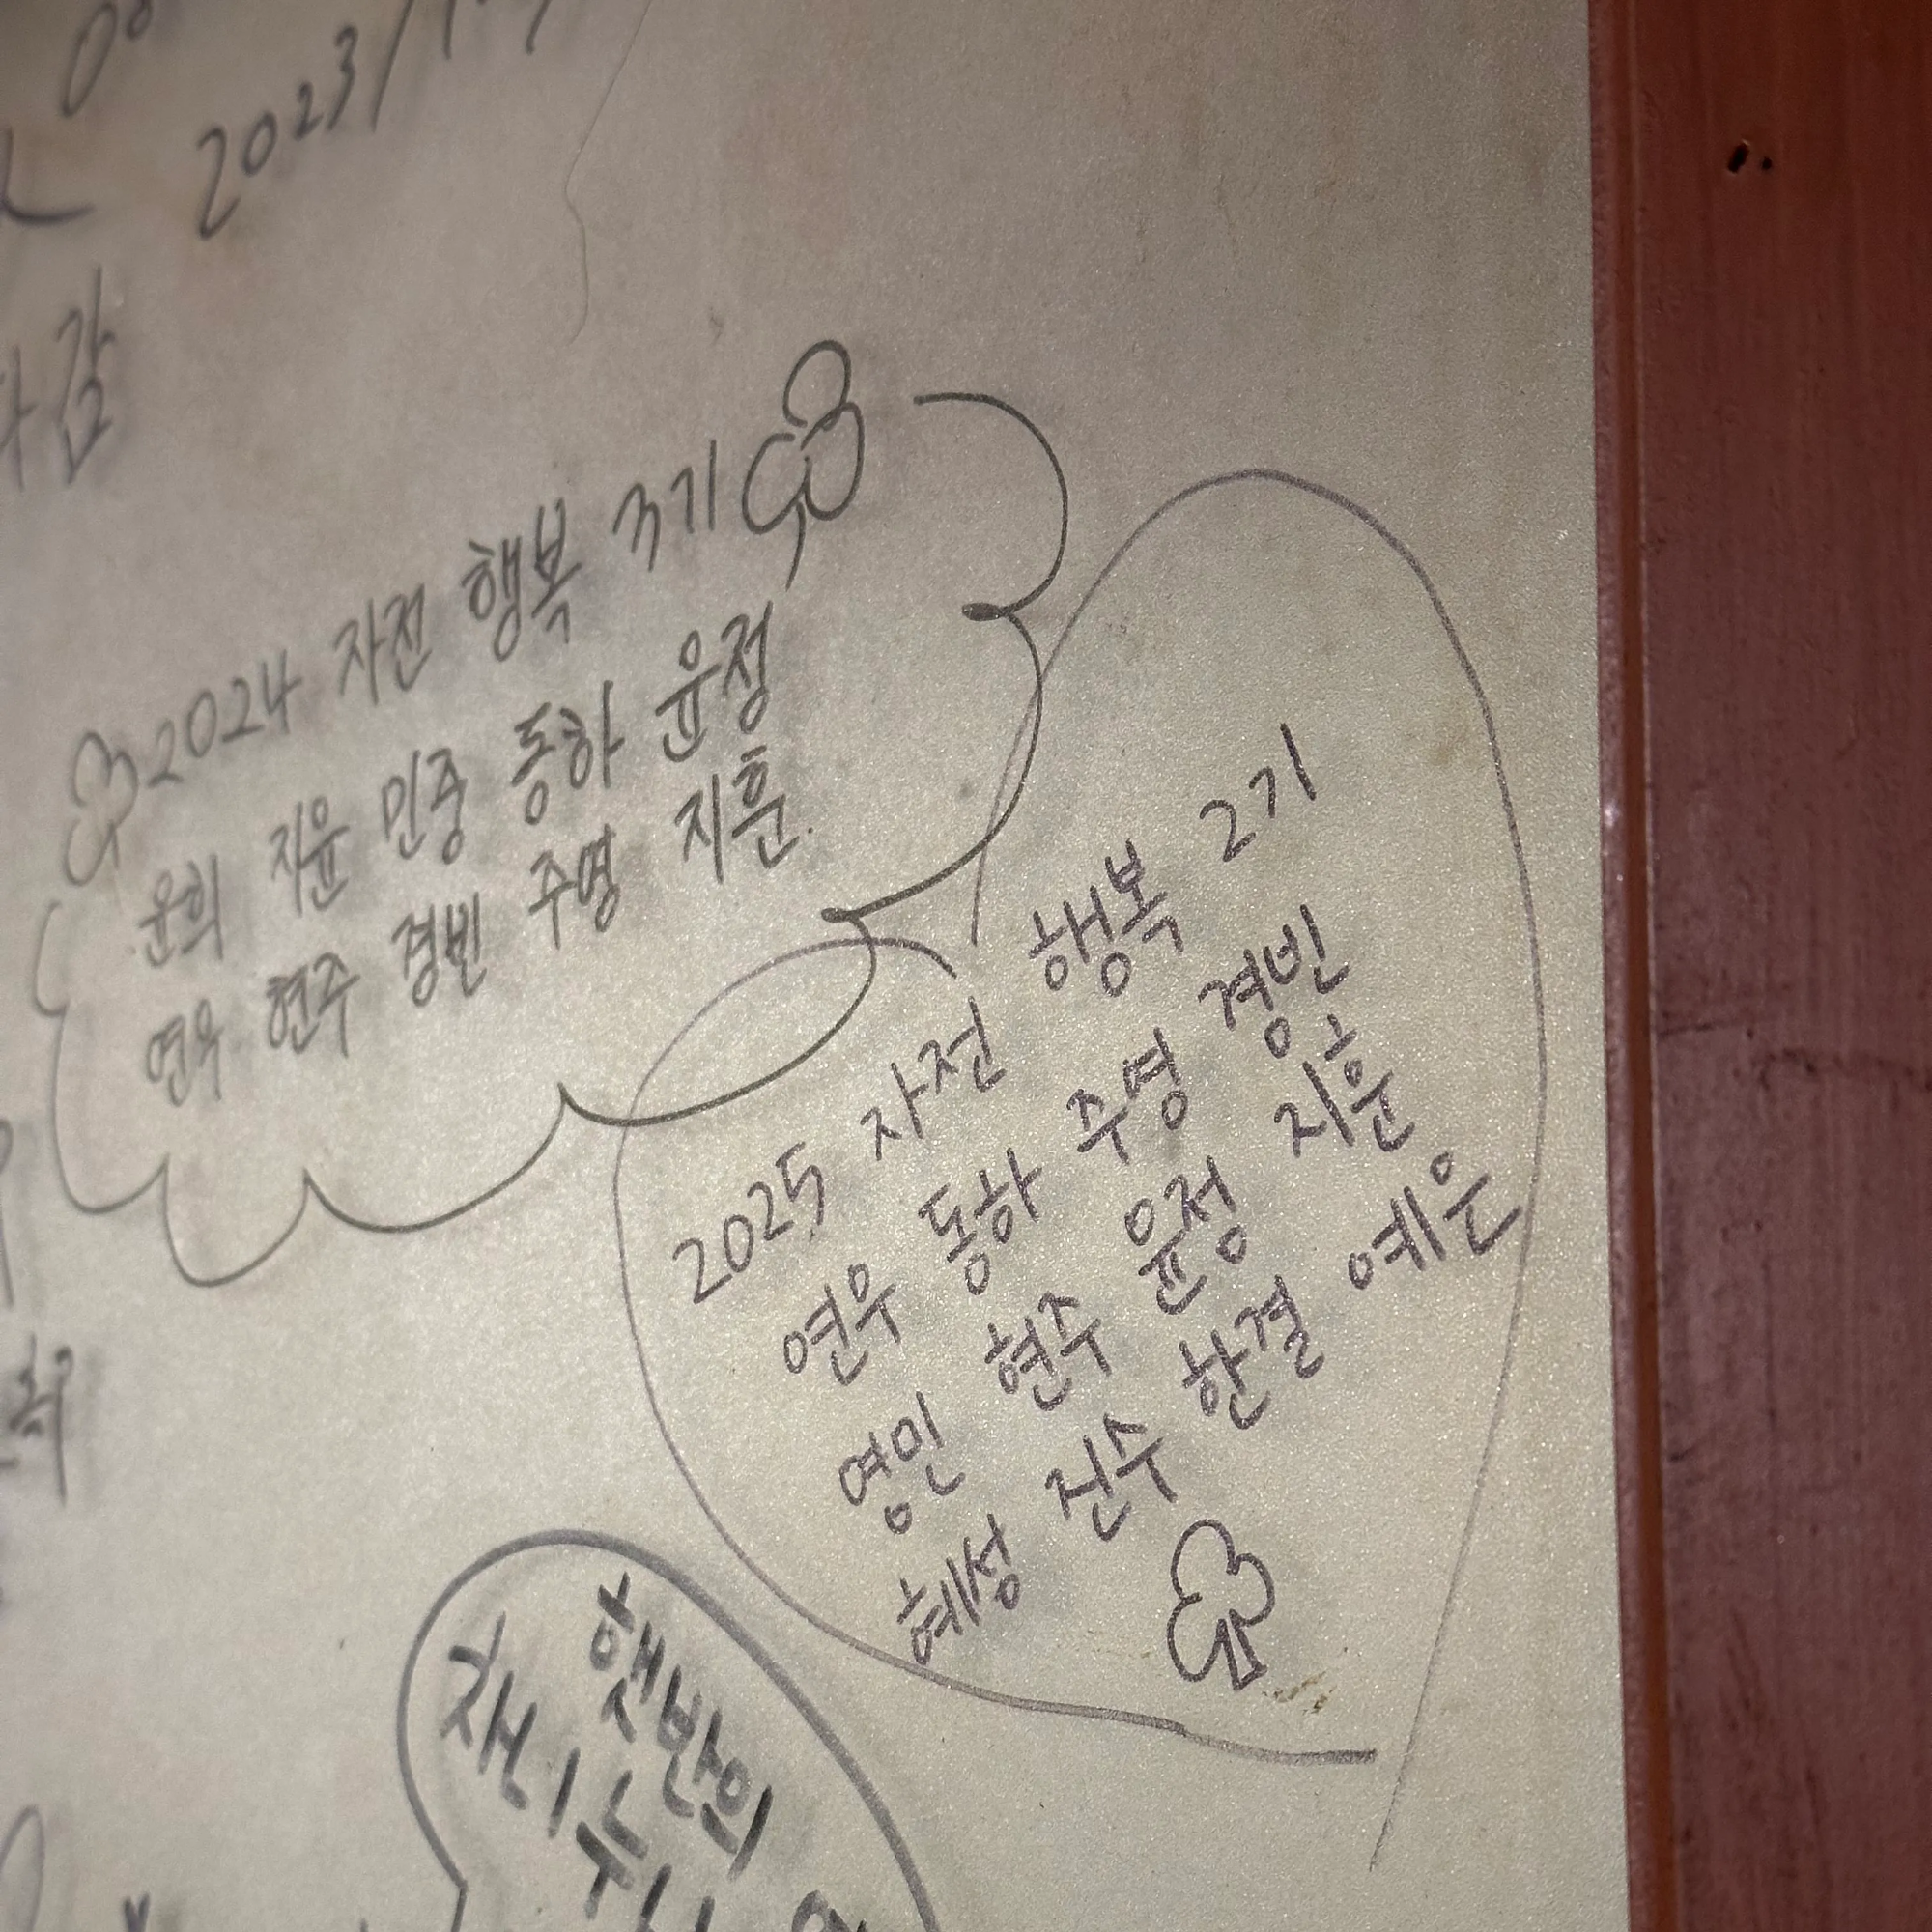 2023/
감
2024 자전 행복 3기
윤희 지윤 민중 동하 윤정
연우 현주 경빈 주영 지훈
2025 자전 행복 2기
연우 동하 주영 경빈
영인 현주 윤정 지훈
혜성 진수 한결 예은